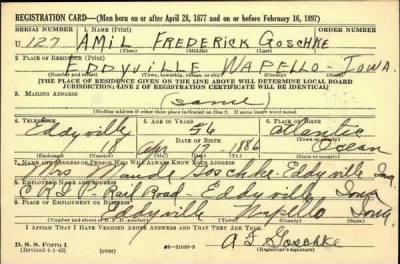 REGISTRATION CARD—(Men born on or after April 28, 1877 and on or before February 16, 1897)
SERIAL NUMBER 1. NAME (Print) ORDER NUMBER
U 127 AMIL FREDERICK GOSCHKE
(First) (Middle) (Last)
2. PLACE OF RESIDENCE (Print)
EDDYVILLE WAPELLO - IOWA.
(Number and street) (Town, township, village, or city) (County) (State)
[THE PLACE OF RESIDENCE GIVEN ON THE LINE ABOVE WILL DETERMINE LOCAL BOARD
JURISDICTION; LINE 2 OF REGISTRATION CERTIFICATE WILL BE IDENTICAL]
3. MAILING ADDRESS
(same)
[Mailing address if other than place indicated on line 2. If same insert word same]
4. TELEPHONE 5. AGE IN YEARS 6. PLACE OF BIRTH
Eddyville 56 Atlantic
DATE OF BIRTH
18 Apr 17 - 1886 Ocean
7. NAME AND ADDRESS OF PERSON WHO WILL ALWAYS KNOW YOUR ADDRESS
Mrs Maude Goschke - Eddyville Iowa
8. EMPLOYER'S NAME AND ADDRESS
Rail Road - Eddyville Iowa
9. PLACE OF EMPLOYMENT OR BUSINESS
Eddyville Wapello Iowa
I AFFIRM THAT I HAVE VERIFIED ABOVE ANSWERS AND THAT THEY ARE TRUE.
D. S. S. Form 1
(Revised 4-1-42) (over) A F Goschke
(Registrant's signature)